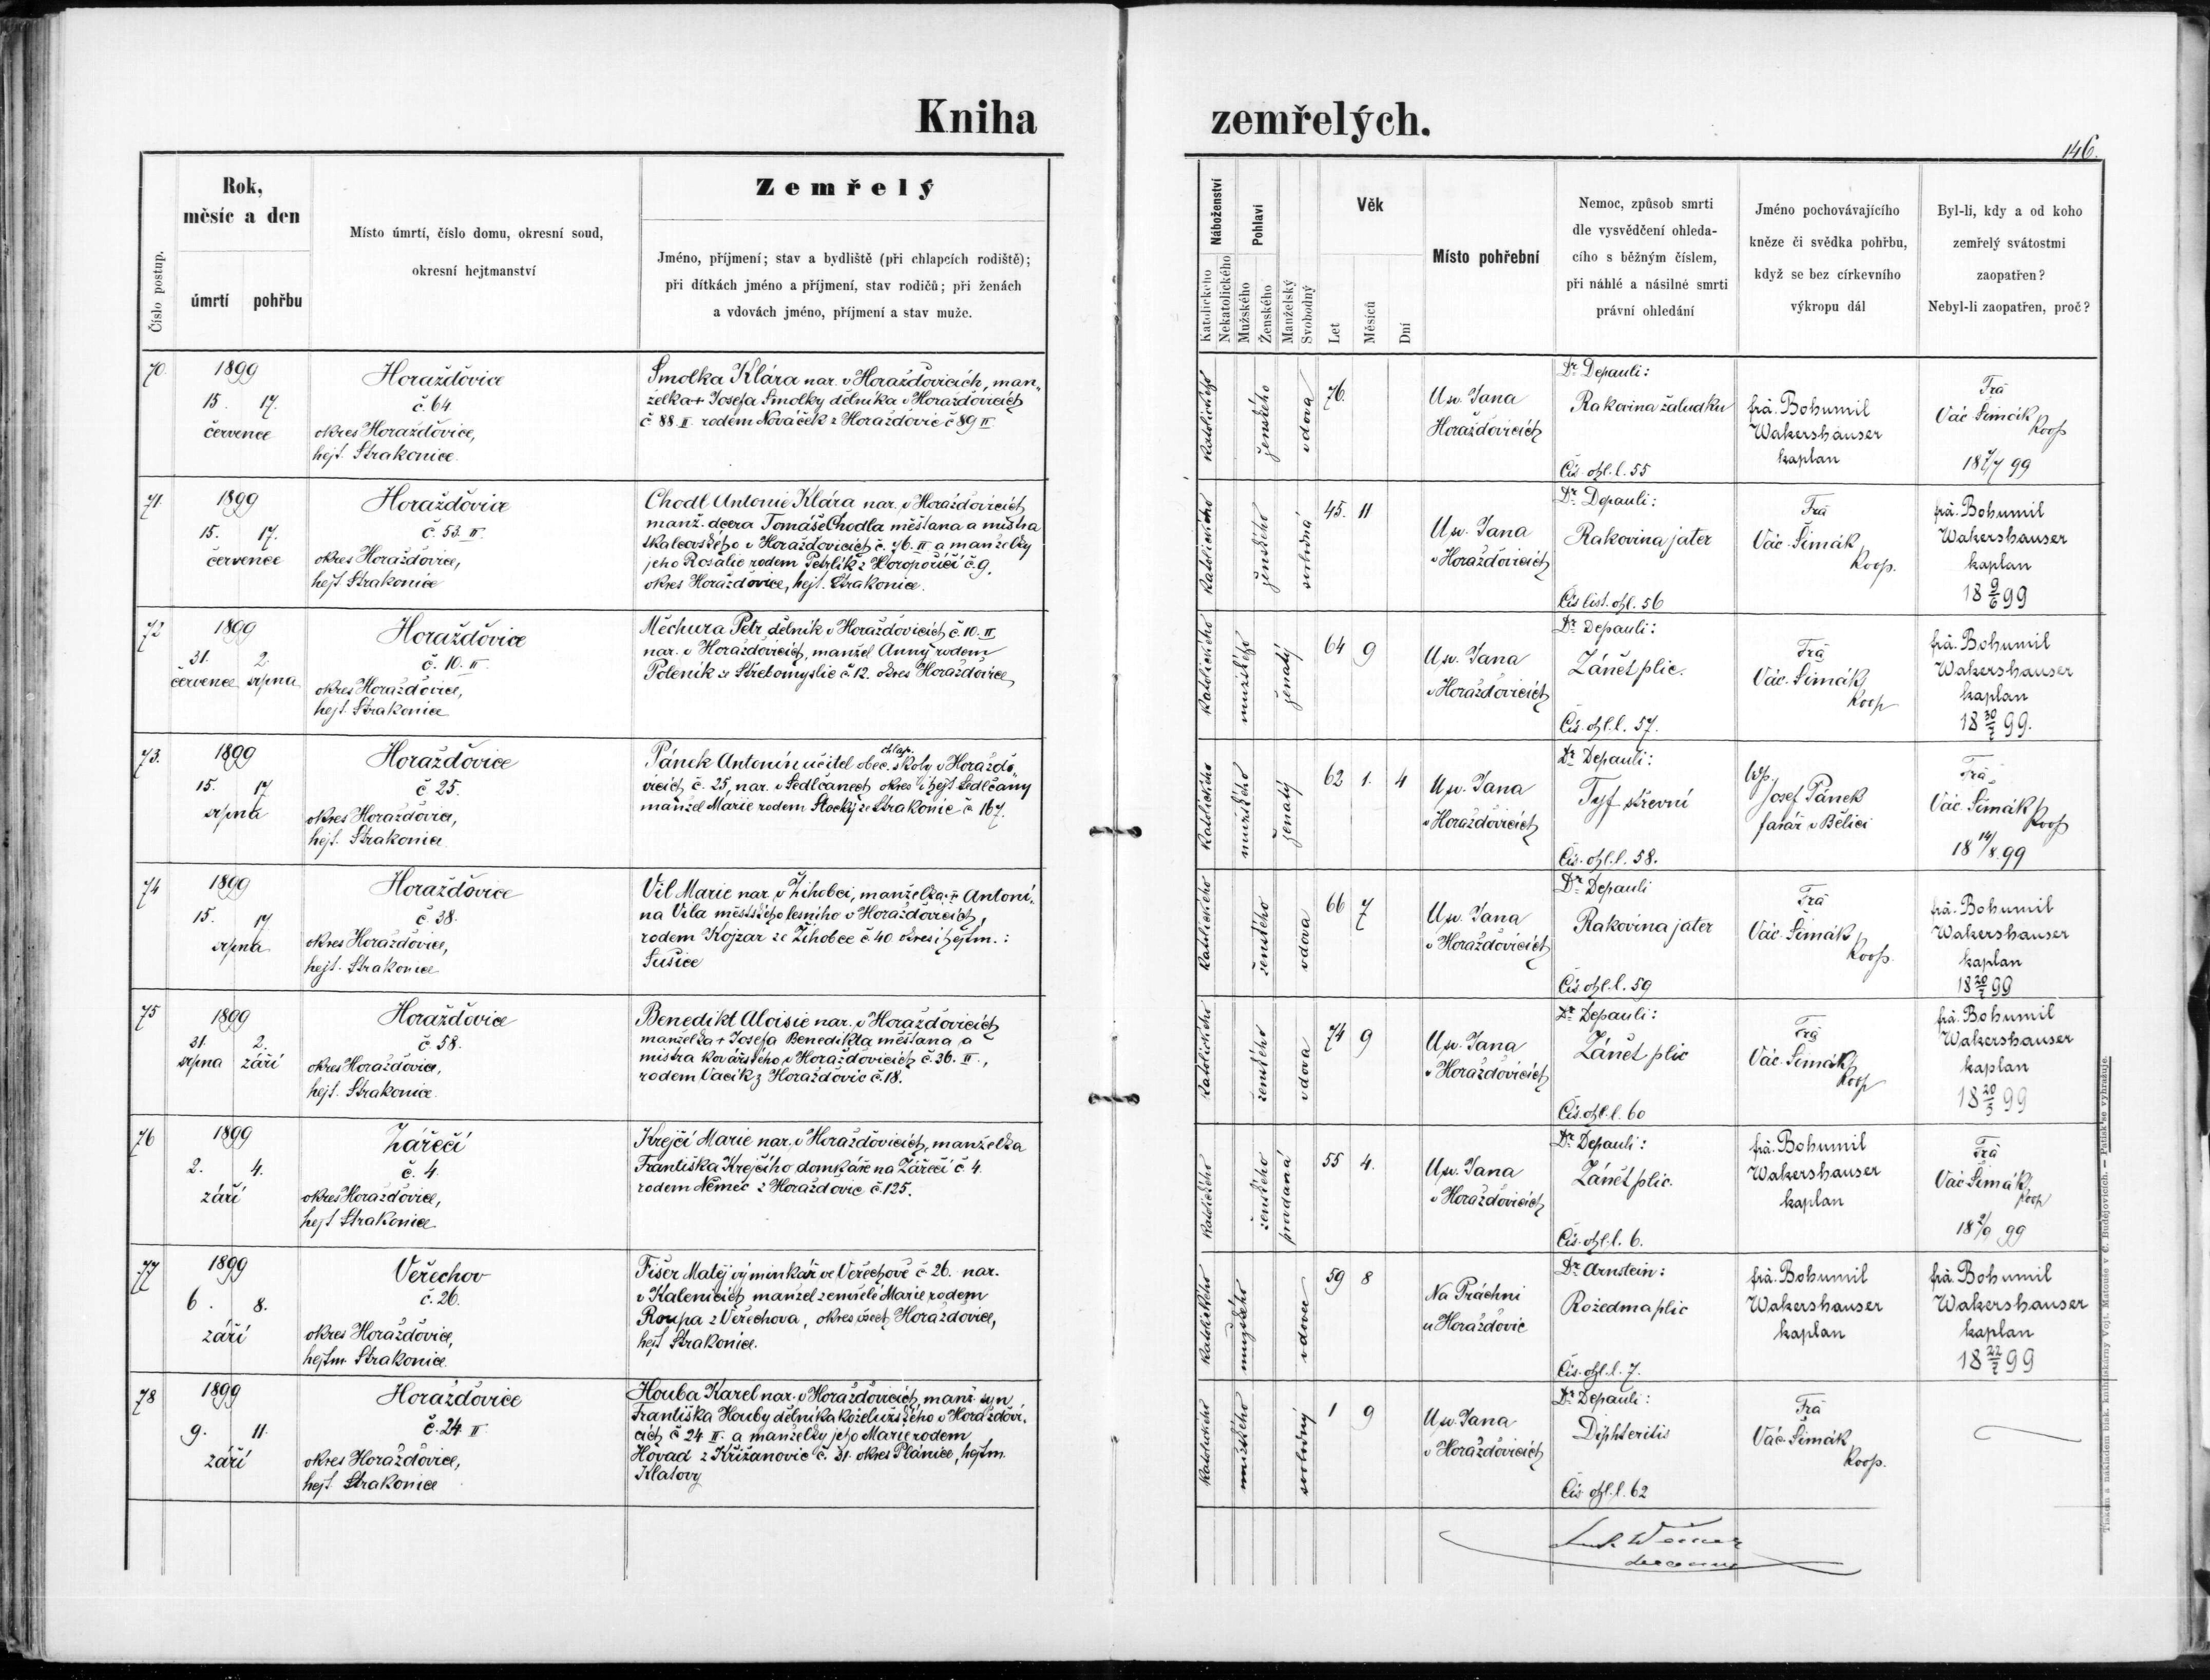 Kniha
zemřelých.
146.
Číslo postup.
Rok,
měsíc a den
úmrtí
pohřbu
Místo úmrtí, číslo domu, okresní soud,
okresní hejtmanství
Zemřelý
Jméno, příjmení; stav a bydliště (při chlapcích rodiště);
při dítkách jméno a příjmení, stav rodičů; při ženách
a vdovách jméno, příjmení a stav muže.
Náboženství
Katolického
Nekatolického
Pohlaví
Mužského
Ženského
Manželský
Svobodný
Věk
Let
Měsíců
Dní
Místo pohřební
Nemoc, způsob smrti
dle vysvědčení ohleda-
cího s běžným číslem,
při náhlé a násilné smrti
právní ohledání
Jméno pochovávajícího
kněze či svědka pohřbu,
když se bez církevního
výkropu dál
Byl-li, kdy a od koho
zemřelý svátostmi
zaopatřen?
Nebyl-li zaopatřen, proč?
70.
1899
15. 17.
července
Horažďovice
č. 64
okres Horažďovice,
hejt. Strakonice.
Smolka Klára nar. v Horažďovicích, man„
želka + Josefa Smolky dělníka v Horažďovicích
č 88. II. rodem Nováček z Horažďovic č 89 II.
katolického
ženského
vdova
76.
U sv. Jana
Horažďovicích
Dr. Depauli:
Rakovina žaludku
Čís. ohl. l. 55
frá. Bohumil
Wakershauser
kaplan
Frá
Vác. Šimák
koop
18 7/7 99
71.
1899
15. 17.
července
Horažďovice
č. 53. II.
okres Horažďovice,
hejt. Strakonice
Chodl Antonie Klára nar. v Horažďovicích
manž. dcera Tomáše Chodla měšťana a mistra
tkalcovského v Horažďovicích č. 76. II a manželky
jeho Rosalie rodem Petrlík z Horopořičí č 9.
okres Horažďovice, hejt. Strakonice.
katolického
ženského
svobodná
45. 11
U sv. Jana
v Horažďovicích
Dr. Depauli:
Rakovina jater
Čís list. ohl. 56
Frá
Vác. Šimák
koop.
frá. Bohumil
Wakershauser
kaplan
18 9/6 99
72
1899
31. 2.
července srpna
Horažďovice
č. 10. II.
okres Horažďovice,
hejt. Strakonice
Měchura Petr dělník v Horažďovicích č. 10. II
nar. v Horažďovicích, manžel Anny rodem
Poleník ze Střebomyslic č 12. okres Horažďovice
katolického
mužského
ženatý
64 9
U sv. Jana
v Horažďovicích
Dr. Depauli:
Zánět plic.
Čís. ohl. l. 57.
Frá
Vác. Šimák
koop
frá. Bohumil
Wakershauser
kaplan
18 30/7 99.
73.
1899
15. 17
srpna
Horažďovice
č 25.
okres Horažďovice,
hejt. Strakonice
chlap.
Pánek Antonín učitel obec. školy v Horažďo„
vicích č. 25, nar. v Sedlčanech okres i hejt Sedlčany
manžel Marie rodem Stocký ze Strakonic č 167.
katolického
mužského
ženatý
62 1. 4
U sv. Jana
v Horažďovicích
Dr. Depauli:
Tyf střevní
Čís. ohl. l. 58.
Josef Pánek
farář v Bělčici
Frá.
Vác. Šimák
koop
18 14/8 99
74
1899
15. 17
srpna
Horažďovice
č. 38.
okres Horažďovice,
hejt. Strakonice
Vil Marie nar. v Žihobci, manželka + Antoní„
na Vila městského lesního v Horažďovicích,
rodem Kojzar ze Žihobce č 40 okres i hejtm.:
Sušice
katolického
ženského
vdova
66 7
U sv. Jana
v Horažďovicích
Dr. Depauli
Rakovina jater
Čís. ohl. l. 59
Frá
Vác. Šimák
koop.
frá. Bohumil
Wakershauser
kaplan
18 20/7 99
75
1899
31. 2.
srpna září
Horažďovice
č 58.
okres Horažďovice,
hejt. Strakonice.
Benedikt Aloisie nar. v Horažďovicích
manželka + Josefa Benedikta měšťana a
mistra kovářského v Horažďovicích č. 36. II.,
rodem Vacík z Horažďovic č 18.
katolického
ženského
vdova
74 9
U sv. Jana
v Horažďovicích
Dr. Depauli:
Zánět plic
Čís. ohl. l. 60
Frá
Vác. Šimák
koop
frá. Bohumil
Wakershauser
kaplan
18 20/5 99
76
1899
2. 4.
září
Zářečí
č. 4.
okres Horažďovice,
hejt Strakonice
Krejčí Marie nar. v Horažďovicích, manželka
Františka Krejčího domkáře na Zářečí č 4.
rodem Němec z Horažďovic č. 125.
katolického
ženského
provdaná
55 4.
U sv. Jana
v Horažďovicích
Dr. Depauli:
Zánět plic.
Čís. ohl. l. 6.
frá. Bohumil
Wakershauser
kaplan
Frá
Vác Šimák
koop
18 2/9 99
77
1899
6. 8.
září
Veřechov
č. 26.
okres Horažďovice,
hejtm. Strakonice.
Fišer Matěj výminkář ve Veřechově č 26. nar.
v Kalenicích manžel zemřelé Marie rodem
Roupa z Veřechova, okres všech Horažďovice,
hejt Strakonice.
katolického
mužského
vdovec
59 8
Na Práchni
u Horažďovic
Dr. Arnstein:
Rozedma plic
Čís. ohl. l. 7.
frá. Bohumil
Wakershauser
kaplan
frá. Bohumil
Wakershauser
kaplan
18 22/7 99
78
1899
9. 11.
září
Horažďovice
č. 24 II
okres Horažďovice,
hejt Strakonice
Houba Karel nar. v Horažďovicích, manž. syn
Františka Houby dělníka koželužského v Horažďovi„
cích č 24 II. a manželky jeho Marie rodem
Hovad z Křižanovic č. 31. okres Plánice, hejtm.
Klatovy
katolického
mužského
svobodný
1 9
U sv. Jana
v Horažďovicích
Dr. Depauli:
Diphteritis
Čís ohl. l. 62
Frá
Vác. Šimák
koop.
Tiskem a nákladem tisk. knihtiskárny Vojt. Matouše v Č. Budějovicích. — Patisk se vyhražuje.